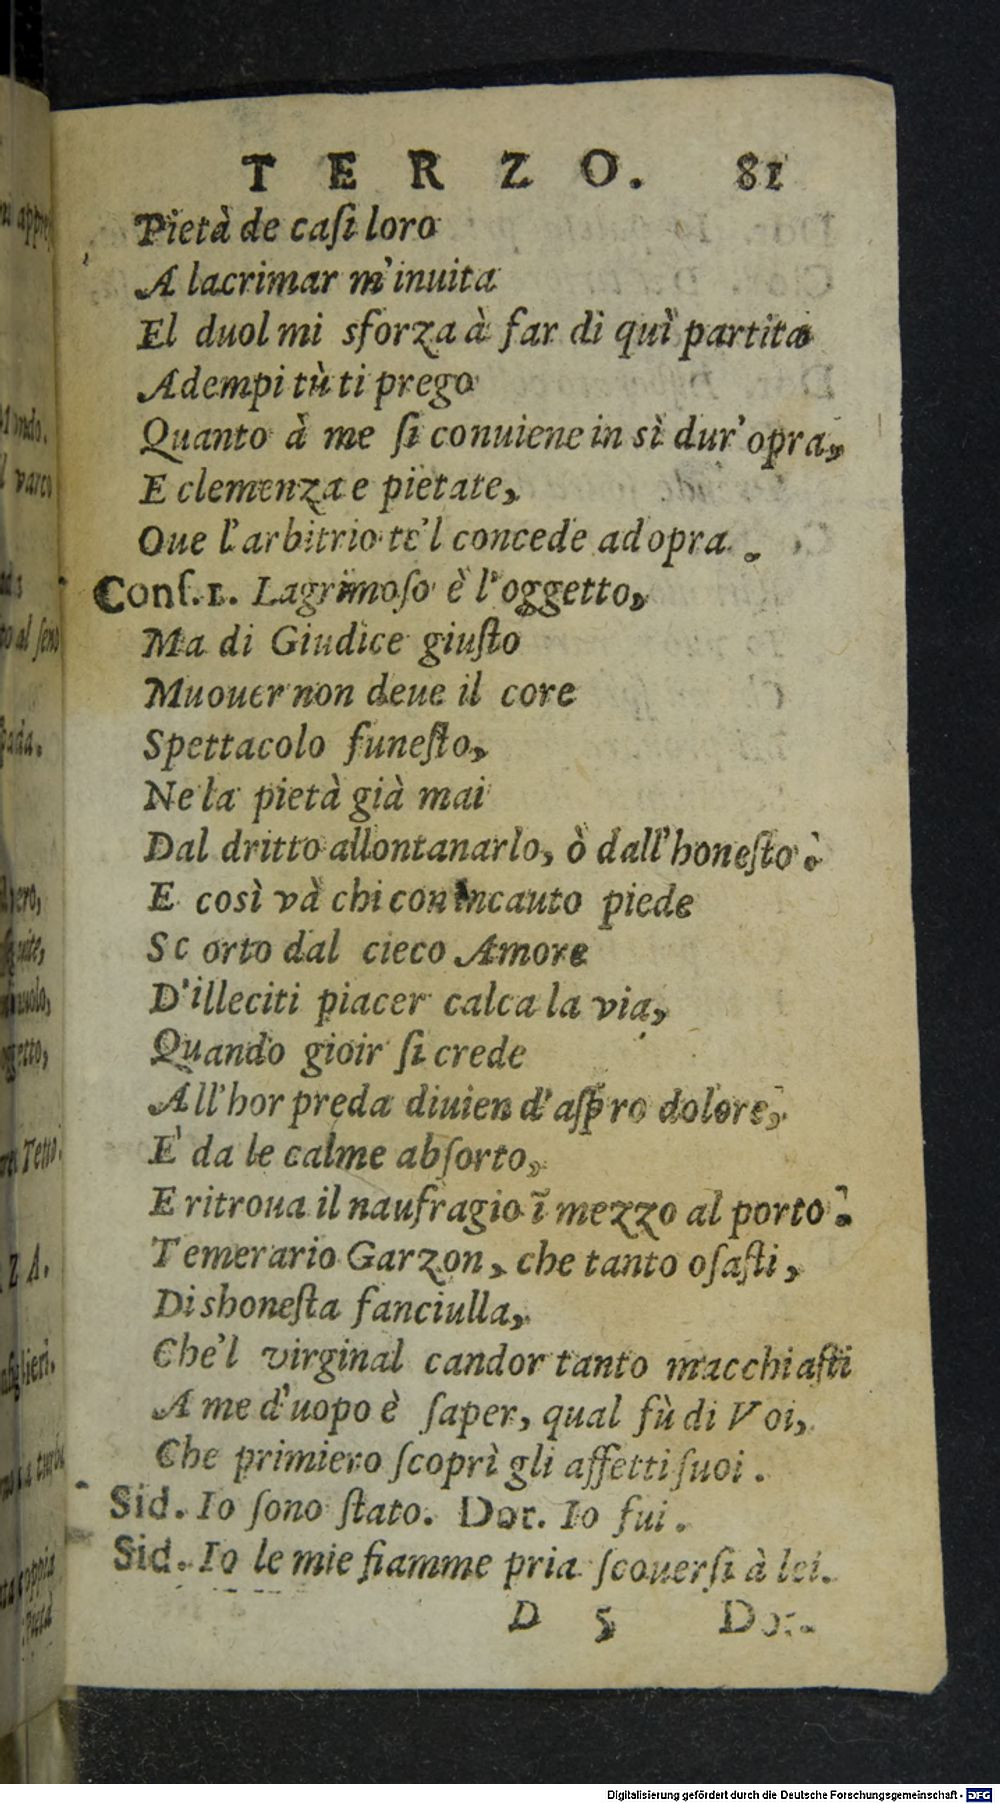 TERZO. 81
Pietà de caſi loro
A lacrimar m'inuita
El duol mi sforza à far di quì partita
Adempi tù ti prego
Quanto à me ſi conuiene in sì dur'opra,
E clemenza e pietate,
Oue l'arbitrio te'l concede adopra.
Conſ.1. Lagrimoſo è l'oggetto,
Ma di Giudice giuſto
Muouer non deue il core
Spettacolo funeſto,
Ne la pietà già mai
Dal dritto allontanarlo, ò dall'honeſto.
E così và chi con incauto piede
Scorto dal cieco Amore
D'illeciti piacer calca la via,
Quando gioir ſi crede
All'hor preda diuien d'aſpro dolore,
E' da le calme abſorto,
E ritroua il naufragio ĩ mezzo al porto.
Temerario Garzon, che tanto oſaſti,
Dishoneſta fanciulla,
Che'l virginal candor tanto macchiaſti
A me d'uopo è ſaper, qual fù di Voi,
Che primiero ſcoprì gli affetti ſuoi.
Sid. Io ſono ſtato. Dor. Io fui.
Sid. Io le mie fiamme pria ſcouerſi à lei.
D 5 Dor.
Digitalisierung gefördert durch die Deutsche Forschungsgemeinschaft - DFG